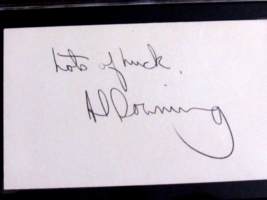 Lots of luck,
Al Downing